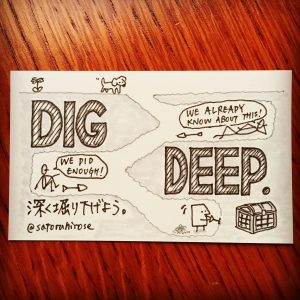 DIG
WE ALREADY
KNOW ABOUT THIS!
WE DID
ENOUGH!
DEEP.
深く掘り下げよう。
@satoruhirose